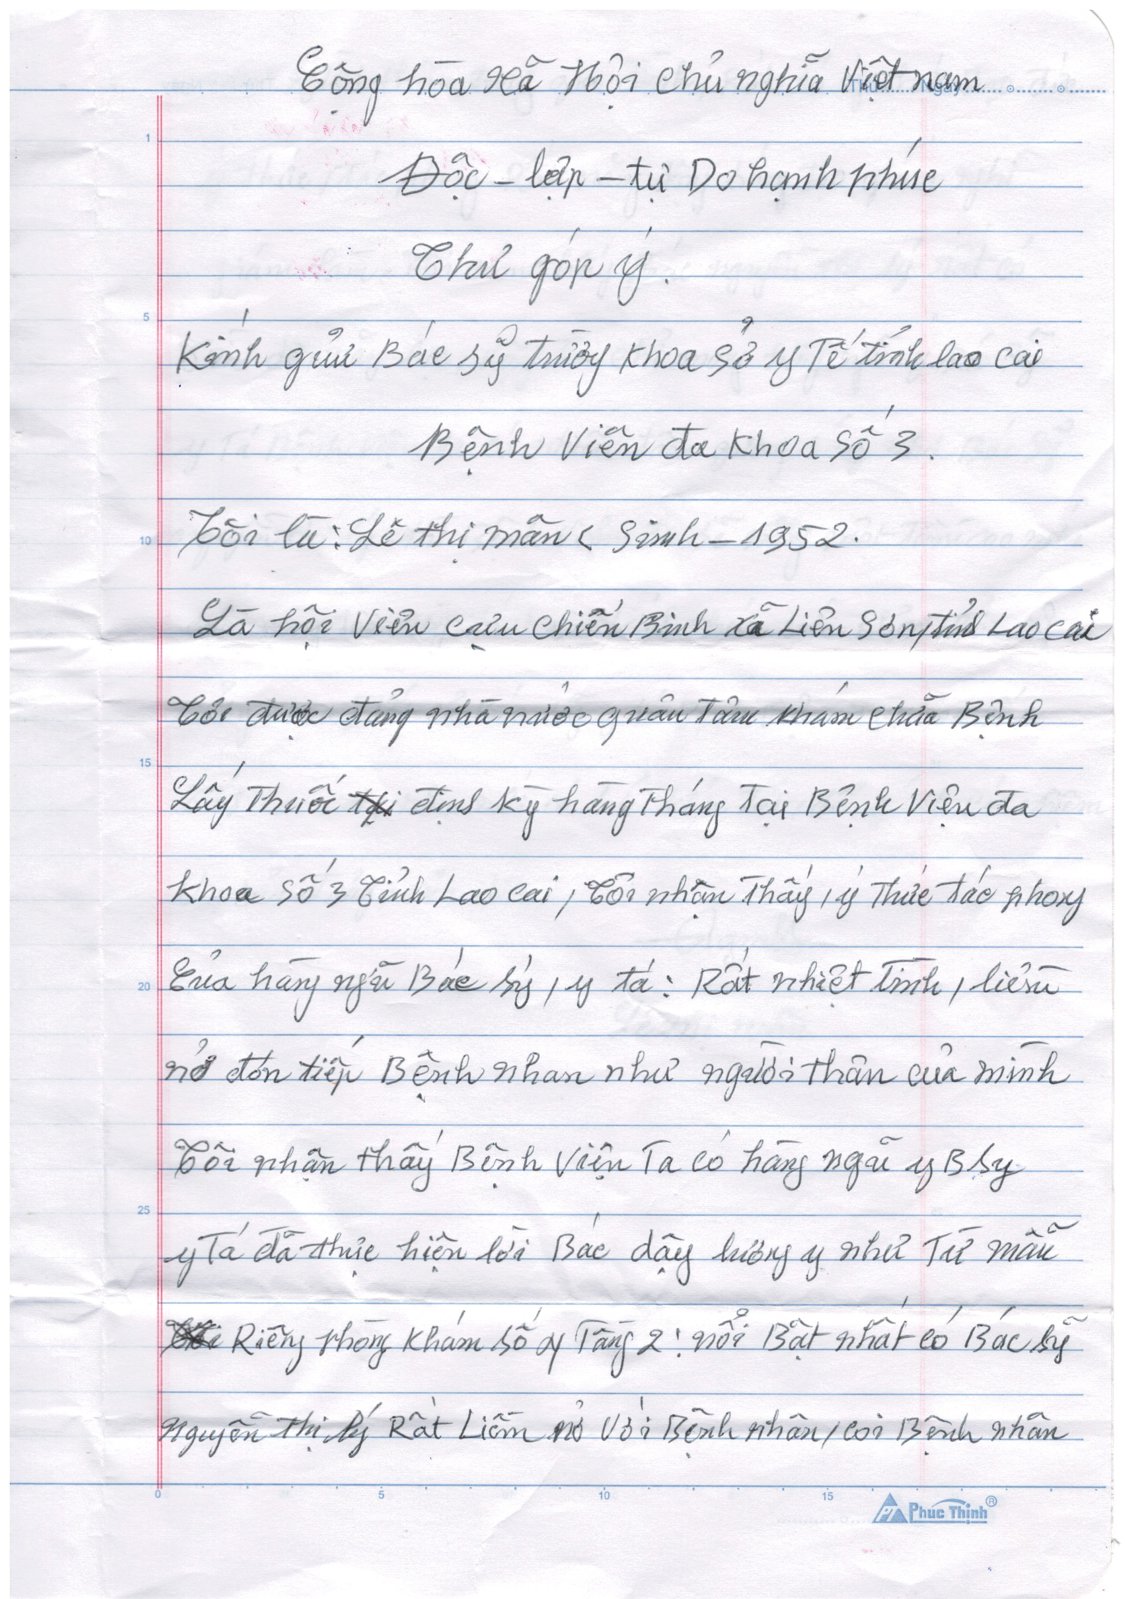 Cộng hòa xã hội chủ nghĩa Việt nam
Độc - lập - tự Do hạnh phúc
Thư góp ý.
Kính gửi Bác sỹ trưởng khoa sở y Tế tỉnh lao cai
Bệnh Viện đa khoa số 3.
Tôi là: Lê thị mẫn ( Sinh - 1952.
Là hội Viên cựu chiến Binh xã Liên Sơn, tỉnh Lao cai
Tôi được đảng nhà nước quan tâm khám chữa Bệnh
Lấy thuốc định kỳ hàng tháng tại Bệnh Viện đa
khoa số 3 tỉnh Lao cai, Tôi nhận thấy, ý thức tác phong
của hàng ngũ Bác sỹ, y tá: Rất nhiệt tình,
nở đón tiếp Bệnh nhân như người thân của mình
Tôi nhận thấy Bệnh Viện Ta có hàng ngũ y B sy
y Tá đã thực hiện lời Bác dậy lương y như Từ mẫu
Riêng phòng khám số Tầng 2: nổi Bật nhất có Bác sỹ
Nguyễn thị lý Rất Liềm nở Với Bệnh nhân, coi Bệnh nhân
Thứ Ngày
1
5
10
15
20
25
0 5 10 15
PT Phuc Thịnh®